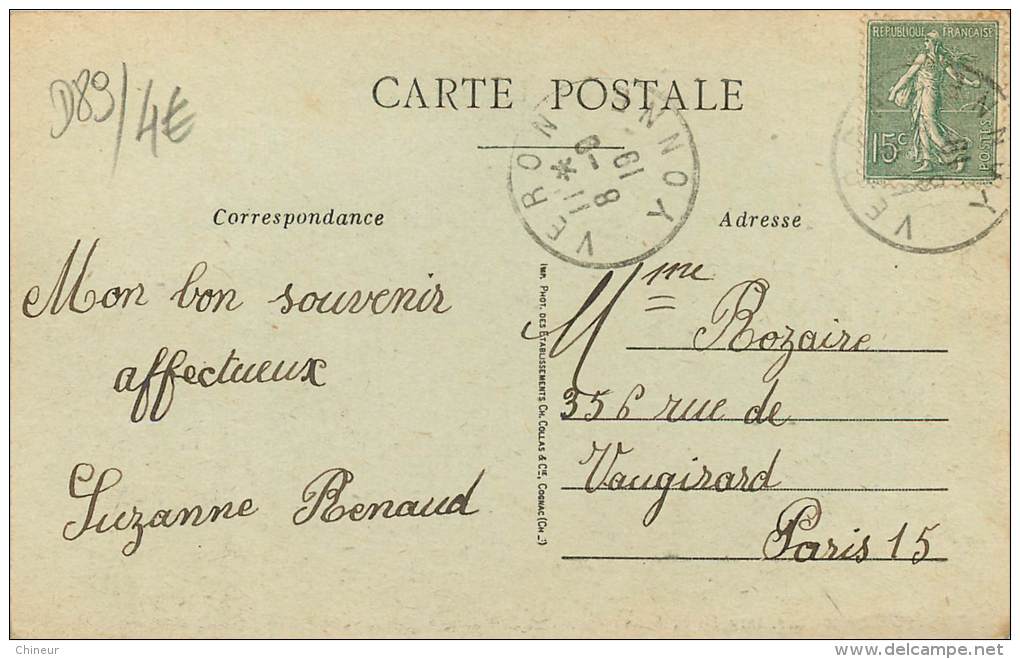 D89/4€
CARTE POSTALE
RÉPUBLIQUE FRANÇAISE
15c
POSTES
VERON
YONNE
Correspondance
Adresse
Mon bon souvenir
affectueux
Suzanne Renaud
IMP. PHOT. DES ÉTABLISSEMENTS CH. COLLAS & CIE, COGNAC (CH_)
Mme
Rozaire
356 rue de
Vaugirard
Paris 15
Chineur
delcampe.net